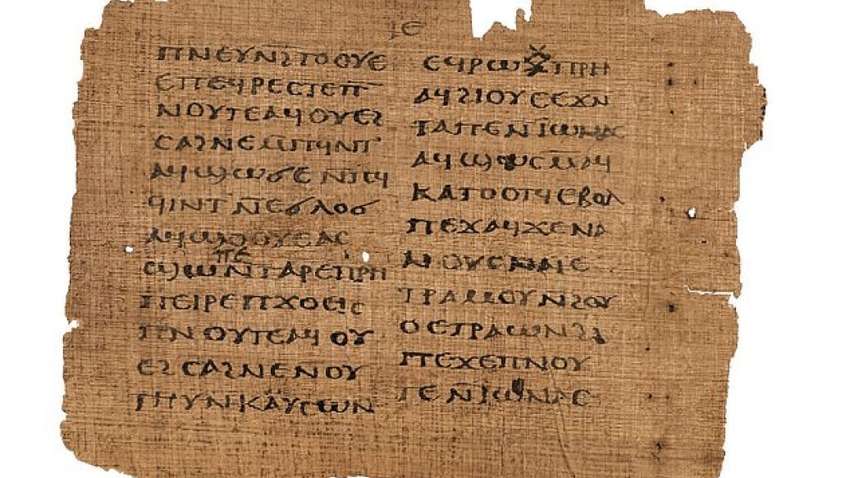 ⲡⲛⲉⲩⲛϩⲧⲟⲟⲩⲉ
ⲉⲡⲉϥⲣⲉⲥⲧⲉⲡ̅
ⲛⲟⲩⲧⲉⲁϥⲟⲩⲉϩ
ⲥⲁϩⲛⲉⲙ̅ⲡϥⲛ̅ⲧ
ⲁϥϣⲱϭⲉⲛ̅ⲡϥ
ϥⲓⲛⲧⲛ̅ⲡⲉϭⲗⲟϭ
ⲁϥϣⲟⲟⲩⲉⲁⲥ
ⲡⲉ
ϣⲱⲛ̅ⲧⲁⲣⲉⲡⲣⲏ
ⲡⲉⲓⲣⲉⲡϫⲟⲉⲓⲥ
ⲡⲛⲟⲩⲧⲉⲁϥⲟⲩ
ⲉϩⲥⲁϩⲛⲉⲛⲟⲩ
ⲡⲛⲩⲛⲕⲁⲩⲥⲱⲛ
ⲉϥⲣⲱϫⲡⲣⲏ
ⲁϥϩⲓⲟⲩⲉⲉϫⲛ
ⲧⲁⲡⲉⲛ̅ⲓⲱⲛⲁⲥ
ⲁϥϣⲱⲥⲙ̅ⲁϥ
ⲕⲁⲧⲟⲟⲧϥⲉⲃⲟⲗ
ⲡⲉϫⲁϥϫⲉⲛⲁ
ⲛⲟⲩⲥⲛⲁⲓⲉ
ⲧⲣⲁⲙⲟⲩⲛ̅ϩⲟⲩ
ⲟⲉⲧⲣⲁⲱⲛϩ
ⲡⲉϫⲉⲡⲛⲟⲩ
ⲧⲉⲛ̅ⲓⲱⲛⲁⲥ